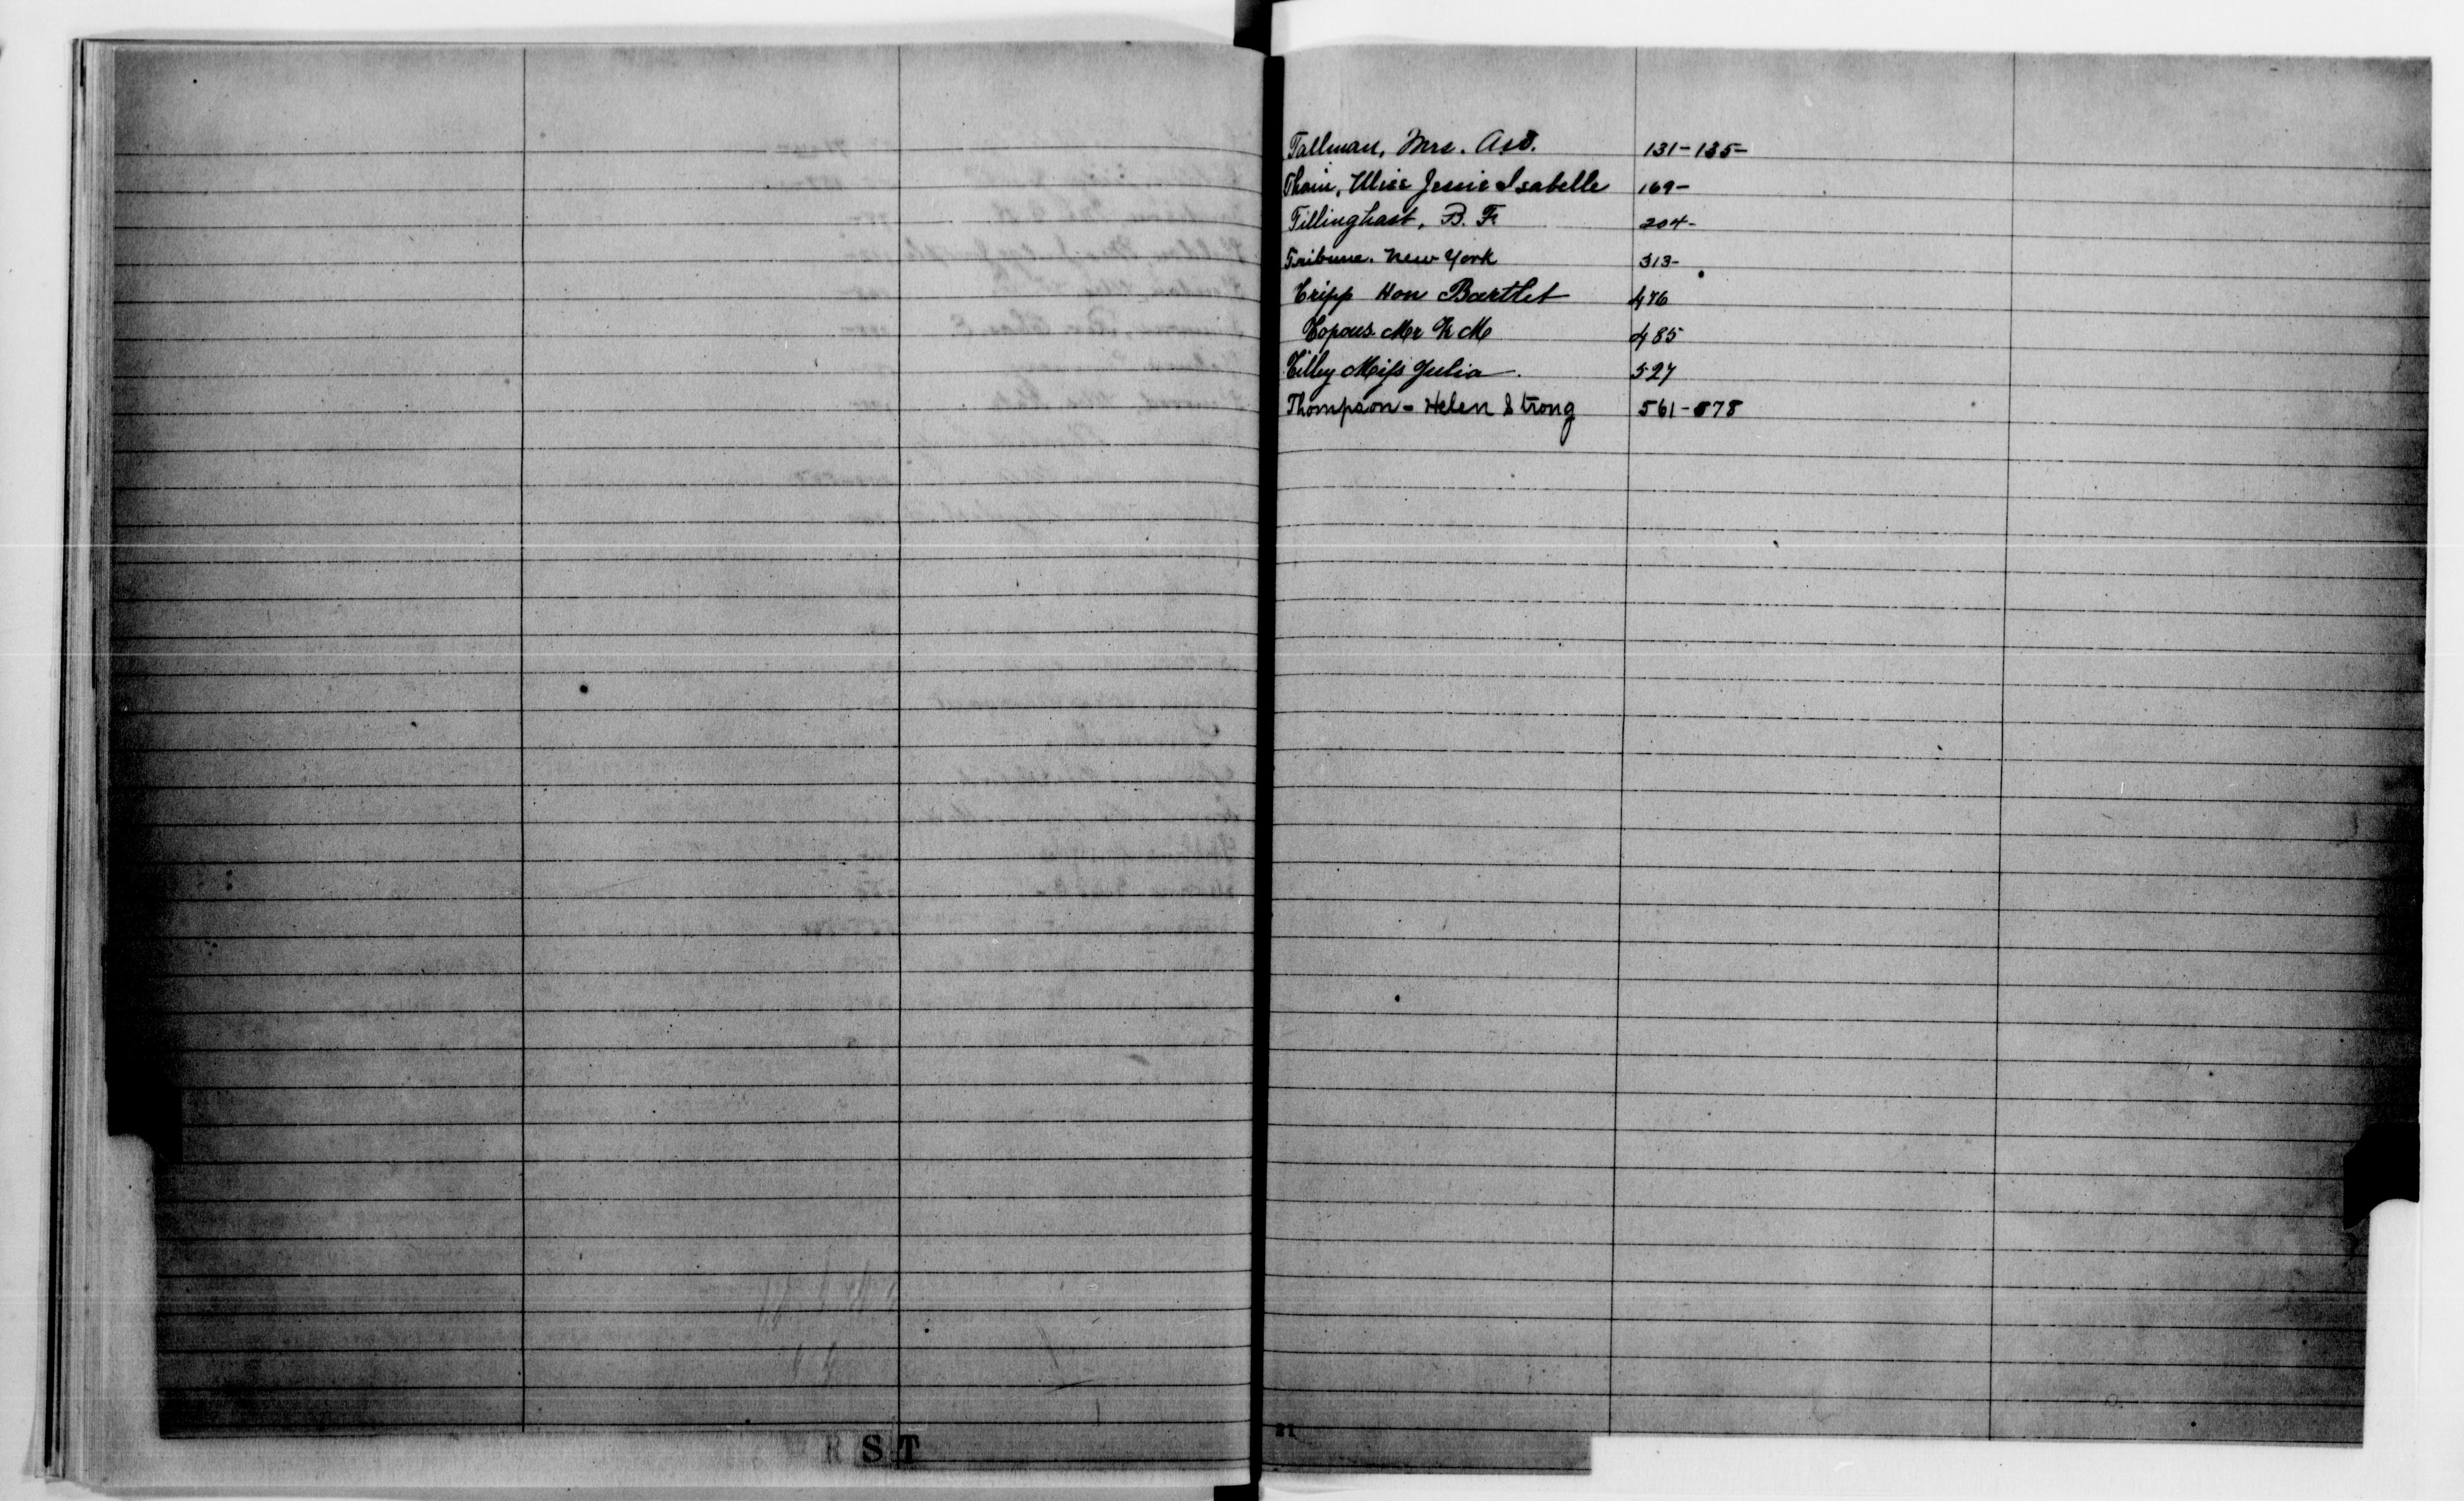 Tallman, Mrs. Asd. 131-135-
Thain, Miss Jessie Isabelle 169-
Tillinghast, B. F. 204-
Tribune. New York 313-
Tripp Hon Bartlet 476
Topous Mr K M 485
Tilley Miss Julia. 527
Thompson - Helen Strong 561-578
R S T
21